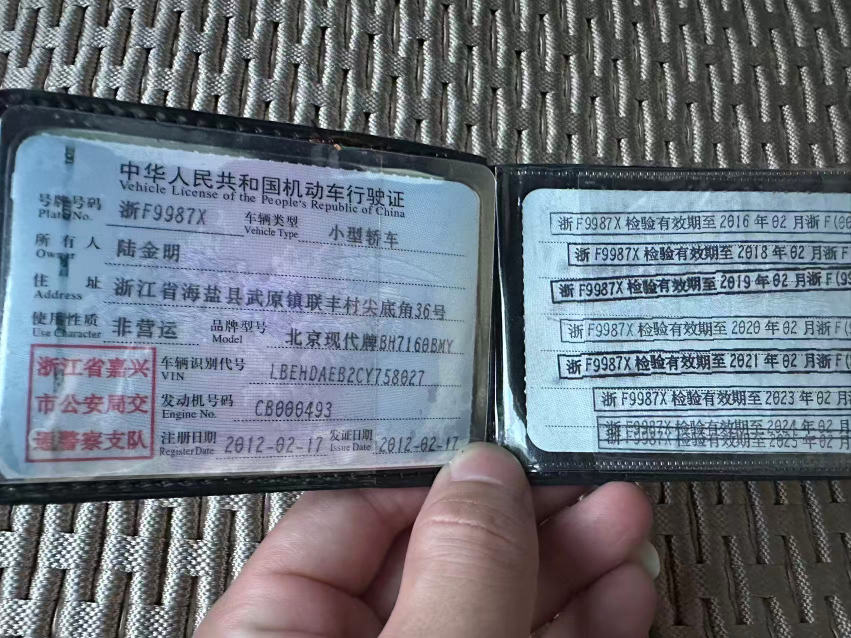 中华人民共和国机动车行驶证
Vehicle License of the People's Republic of China
号牌号码 浙F9987X 车辆类型 小型轿车
Plate No. Vehicle Type
所有人 陆金明
Owner
住址 浙江省海盐县武原镇联丰村尖底角36号
Address
使用性质 非营运 品牌型号 北京现代牌BH7160BMY
Use Character Model
浙江省嘉兴
市公安局交
通警察支队
车辆识别代号 LBEHDAEB2CY758027
VIN
发动机号码 CB000493
Engine No.
注册日期 2012-02-17 发证日期 2012-02-17
Register Date Issue Date
浙F9987X 检验有效期至 2016 年 02 月浙 F(
浙 F9987X 检验有效期至 2018 年 02 月浙 F
浙F9987X 检验有效期至 2019 年 02 月浙 F(
浙 F9987X 检验有效期至 2020 年 02 月浙 F(
浙 F9987X 检验有效期至 2021 年 02 月浙 F(
浙 F9987X 检验有效期至 2023 年 02 月
浙 F9987X 检验有效期至 2024 年 02 月
浙 F9987X 检验有效期至 2025 年 02 月